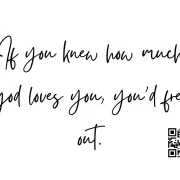 If you knew how much
god loves you, you'd fre
out.